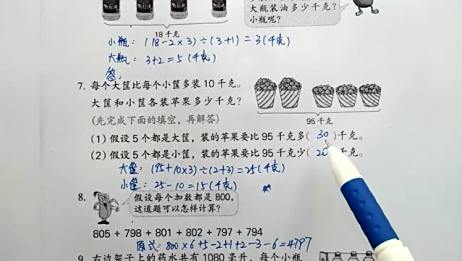 大瓶装油多少千克?
小瓶呢?
18千克
小瓶: (18-2×3)÷(3+1)=3(千克)
大瓶: 3+2=5(千克)
答
7. 每个大筐比每个小筐多装10千克。
大筐和小筐各装苹果多少千克?
(先完成下面的填空,再解答)
95千克
(1) 假设5个都是大筐,装的苹果要比95千克多(30)千克。
(2) 假设5个都是小筐,装的苹果要比95千克少(20)千克。
大筐: (95+10×3)÷(2+3)=25(千克)
小筐: 25-10=15(千克)
8.
假设每个加数都是800,
这道题可以怎样计算?
805+798+801+802+797+794
原式: 800×6+5-2+1+2-3-6=4797
9. 右边架子上的药水共有1080毫升,每个小瓶